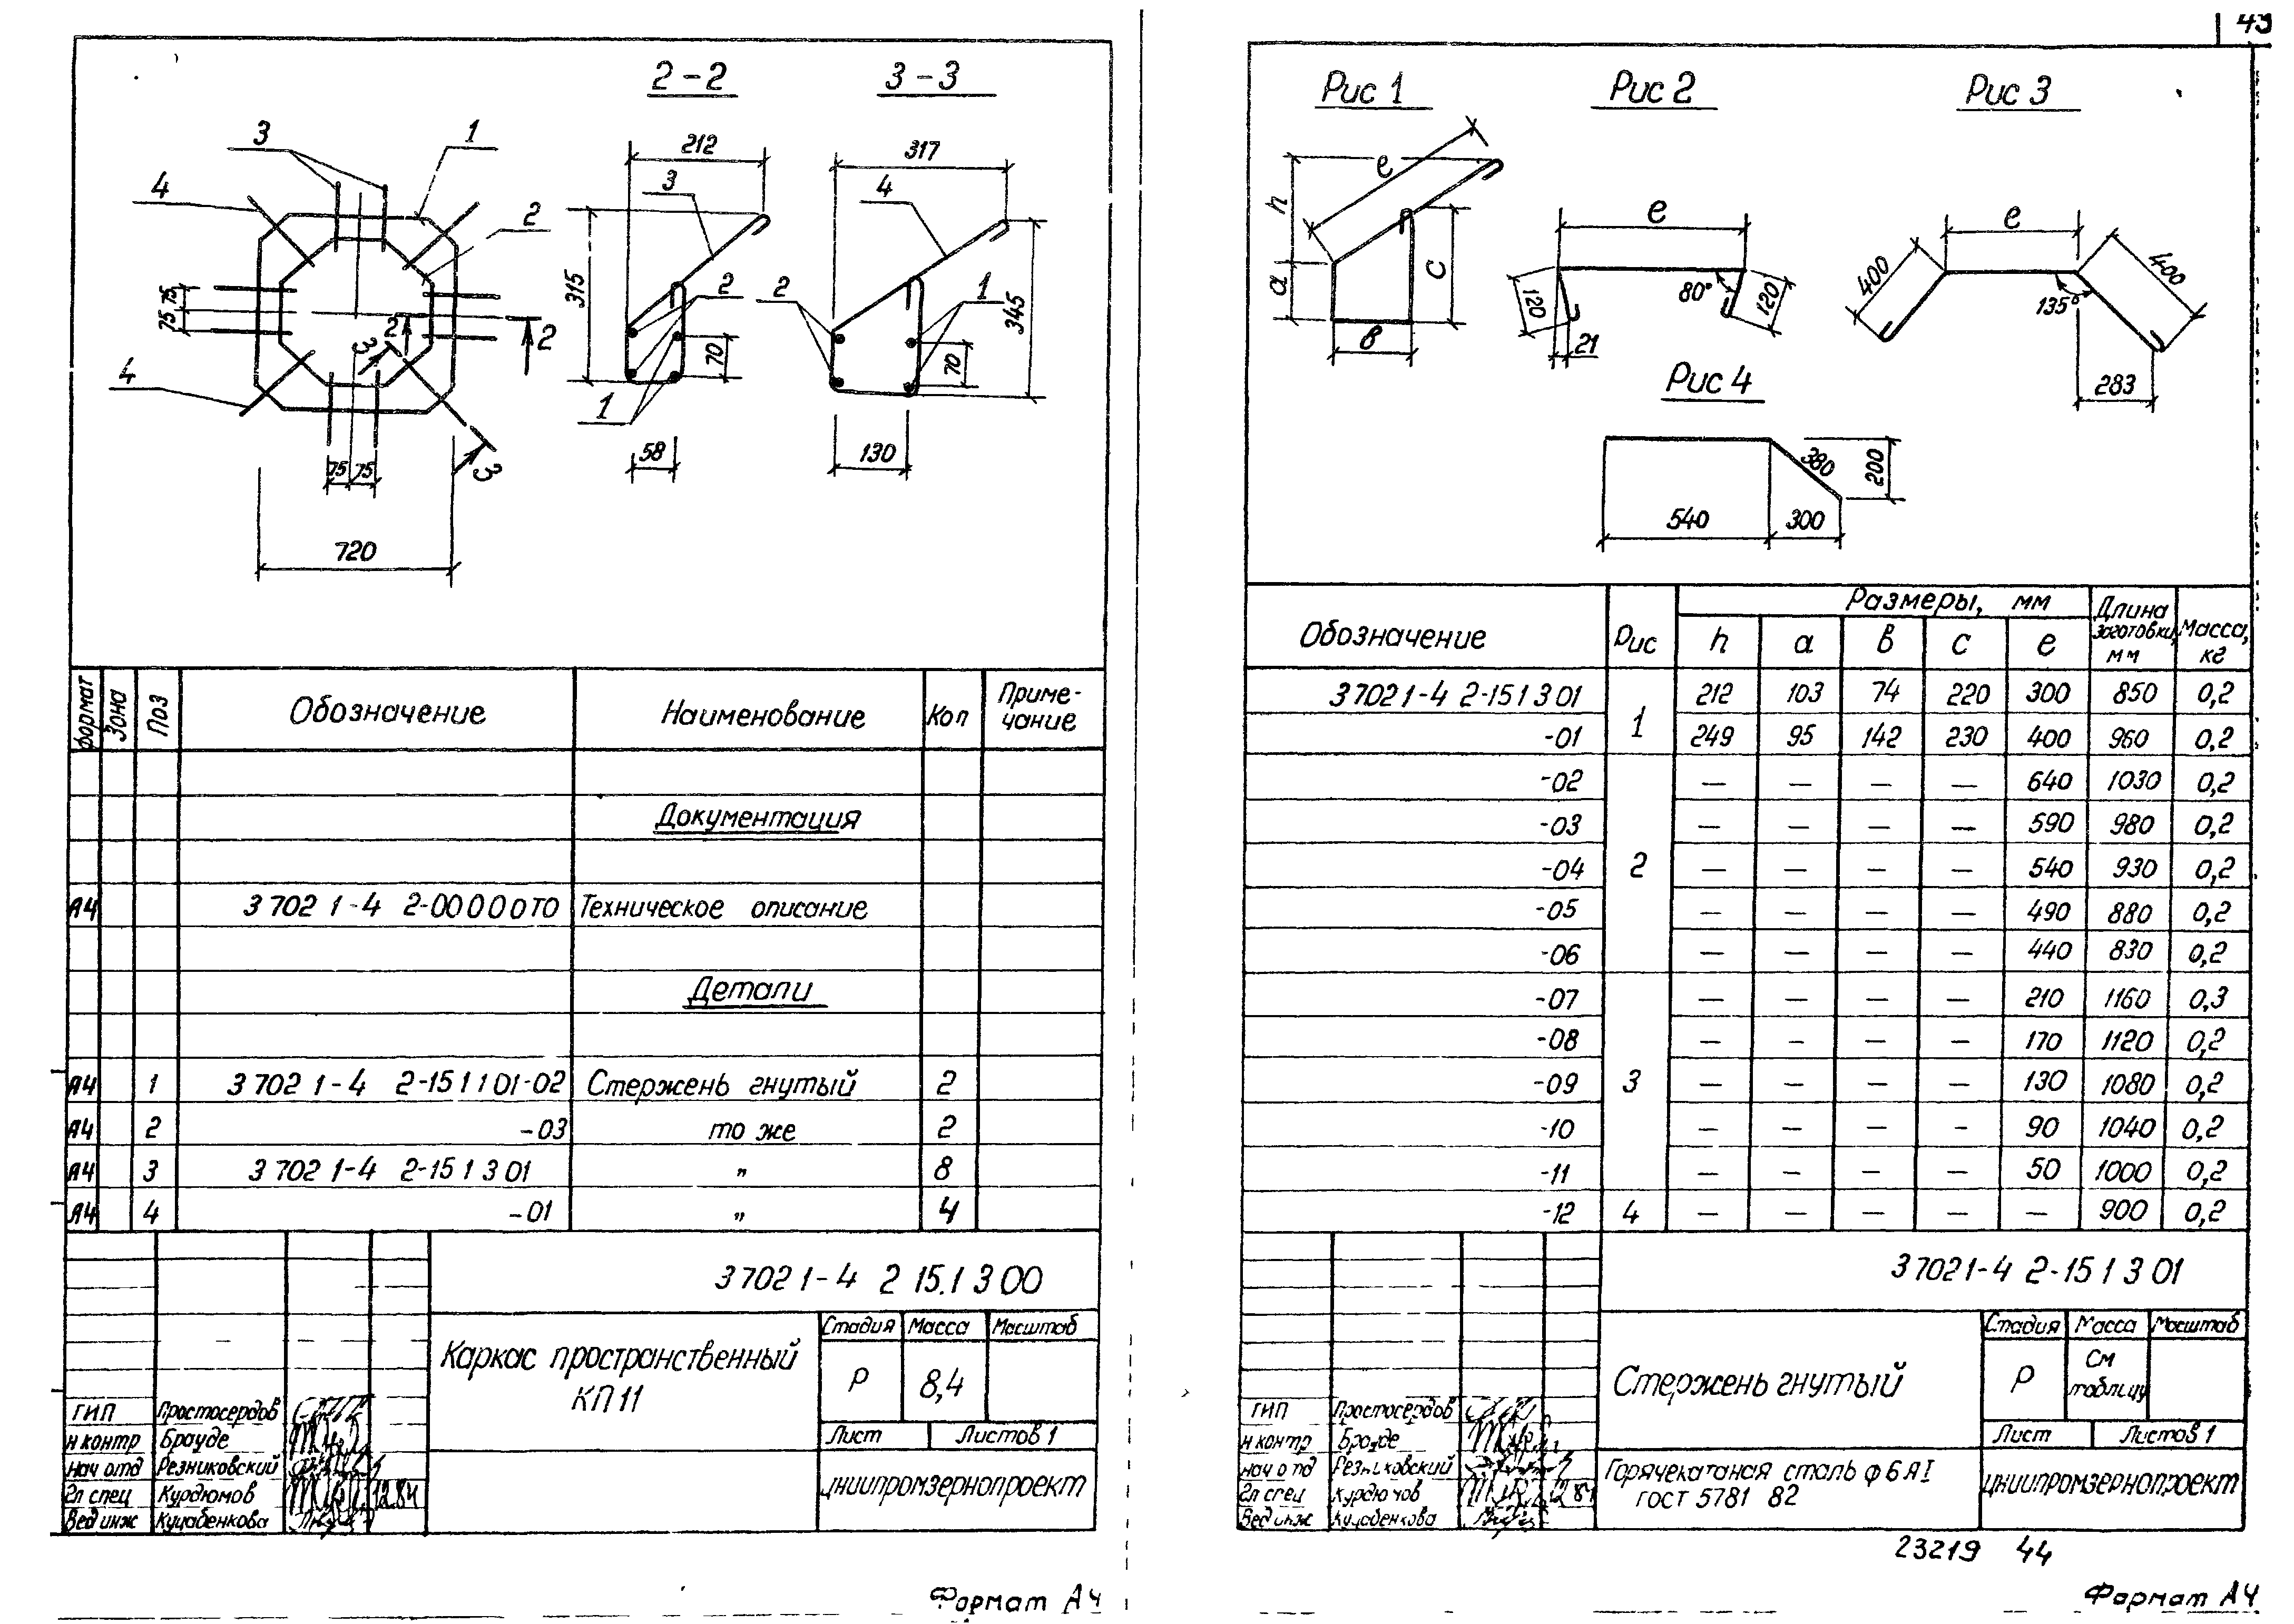 43
2-2
3-3
3
1
4
2
75
75
2
3
2
4
75 75
3
720
212
3
315
2
70
1
58
317
4
2
1
345
70
130
Рис 1
Рис 2
Рис 3
h
е
а
с
в
е
120
80°
120
21
е
400
400
135°
283
Рис 4
380
200
540
300
формат Зона Поз Обозначение Наименование Кол Приме-
чание
Документация
А4 3 702 1-4 2-00 0 0 0ТО Техническое описание
Детали
А4 1 3 702 1-4 2-15 1 1 01-02 Стержень гнутый 2
А4 2 -03 то же 2
А4 3 3 702 1-4 2-15 1 3 01 " 8
А4 4 -01 " 4
3 702 1-4 2 15.1 3 00
Каркас пространственный
КП 11
Стадия Масса Масштаб
Р 8,4
Лист Листов 1
ЦНИИпромзернопроект
ГИП Простосердов
н контр Брауде
нач отд Резниковский
Гл спец Курдюмов 12.84
Вед инж Куцабенкова
Формат А4
Обозначение Рис Размеры, мм Длина
заготовки,
мм Масса,
кг
h а в с е
3 702 1-4 2-15 1 3 01 1 212 103 74 220 300 850 0,2
-01 249 95 142 230 400 960 0,2
-02 2 — — — — 640 1030 0,2
-03 — — — — 590 980 0,2
-04 — — — — 540 930 0,2
-05 — — — — 490 880 0,2
-06 — — — — 440 830 0,2
-07 3 — — — — 210 1160 0,3
-08 — — — — 170 1120 0,2
-09 — — — — 130 1080 0,2
-10 — — — — 90 1040 0,2
-11 — — — — 50 1000 0,2
-12 4 — — — — — 900 0,2
3 702 1-4 2-15 1 3 01
Стержень гнутый
Стадия Масса Масштаб
Р См
таблицу
Лист Листов 1
Горячекатаная сталь ф 6 А I
гост 5781 82
ЦНИИпромзернопроект
ГИП Простосердов
н контр Брауде
нач отд Резниковский
Гл спец Курдюмов 12 84
Вед инж Куцабенкова
23219 44
Формат А4